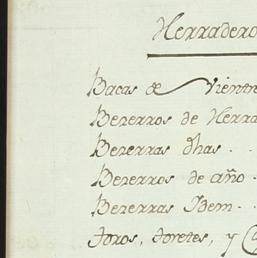 Herradero
Bacas de Vientre
Bezerros de Herra
Bezerras dhas . .
Bezerros de año .
Bezerras Ydem . .
Toros, toretes, y